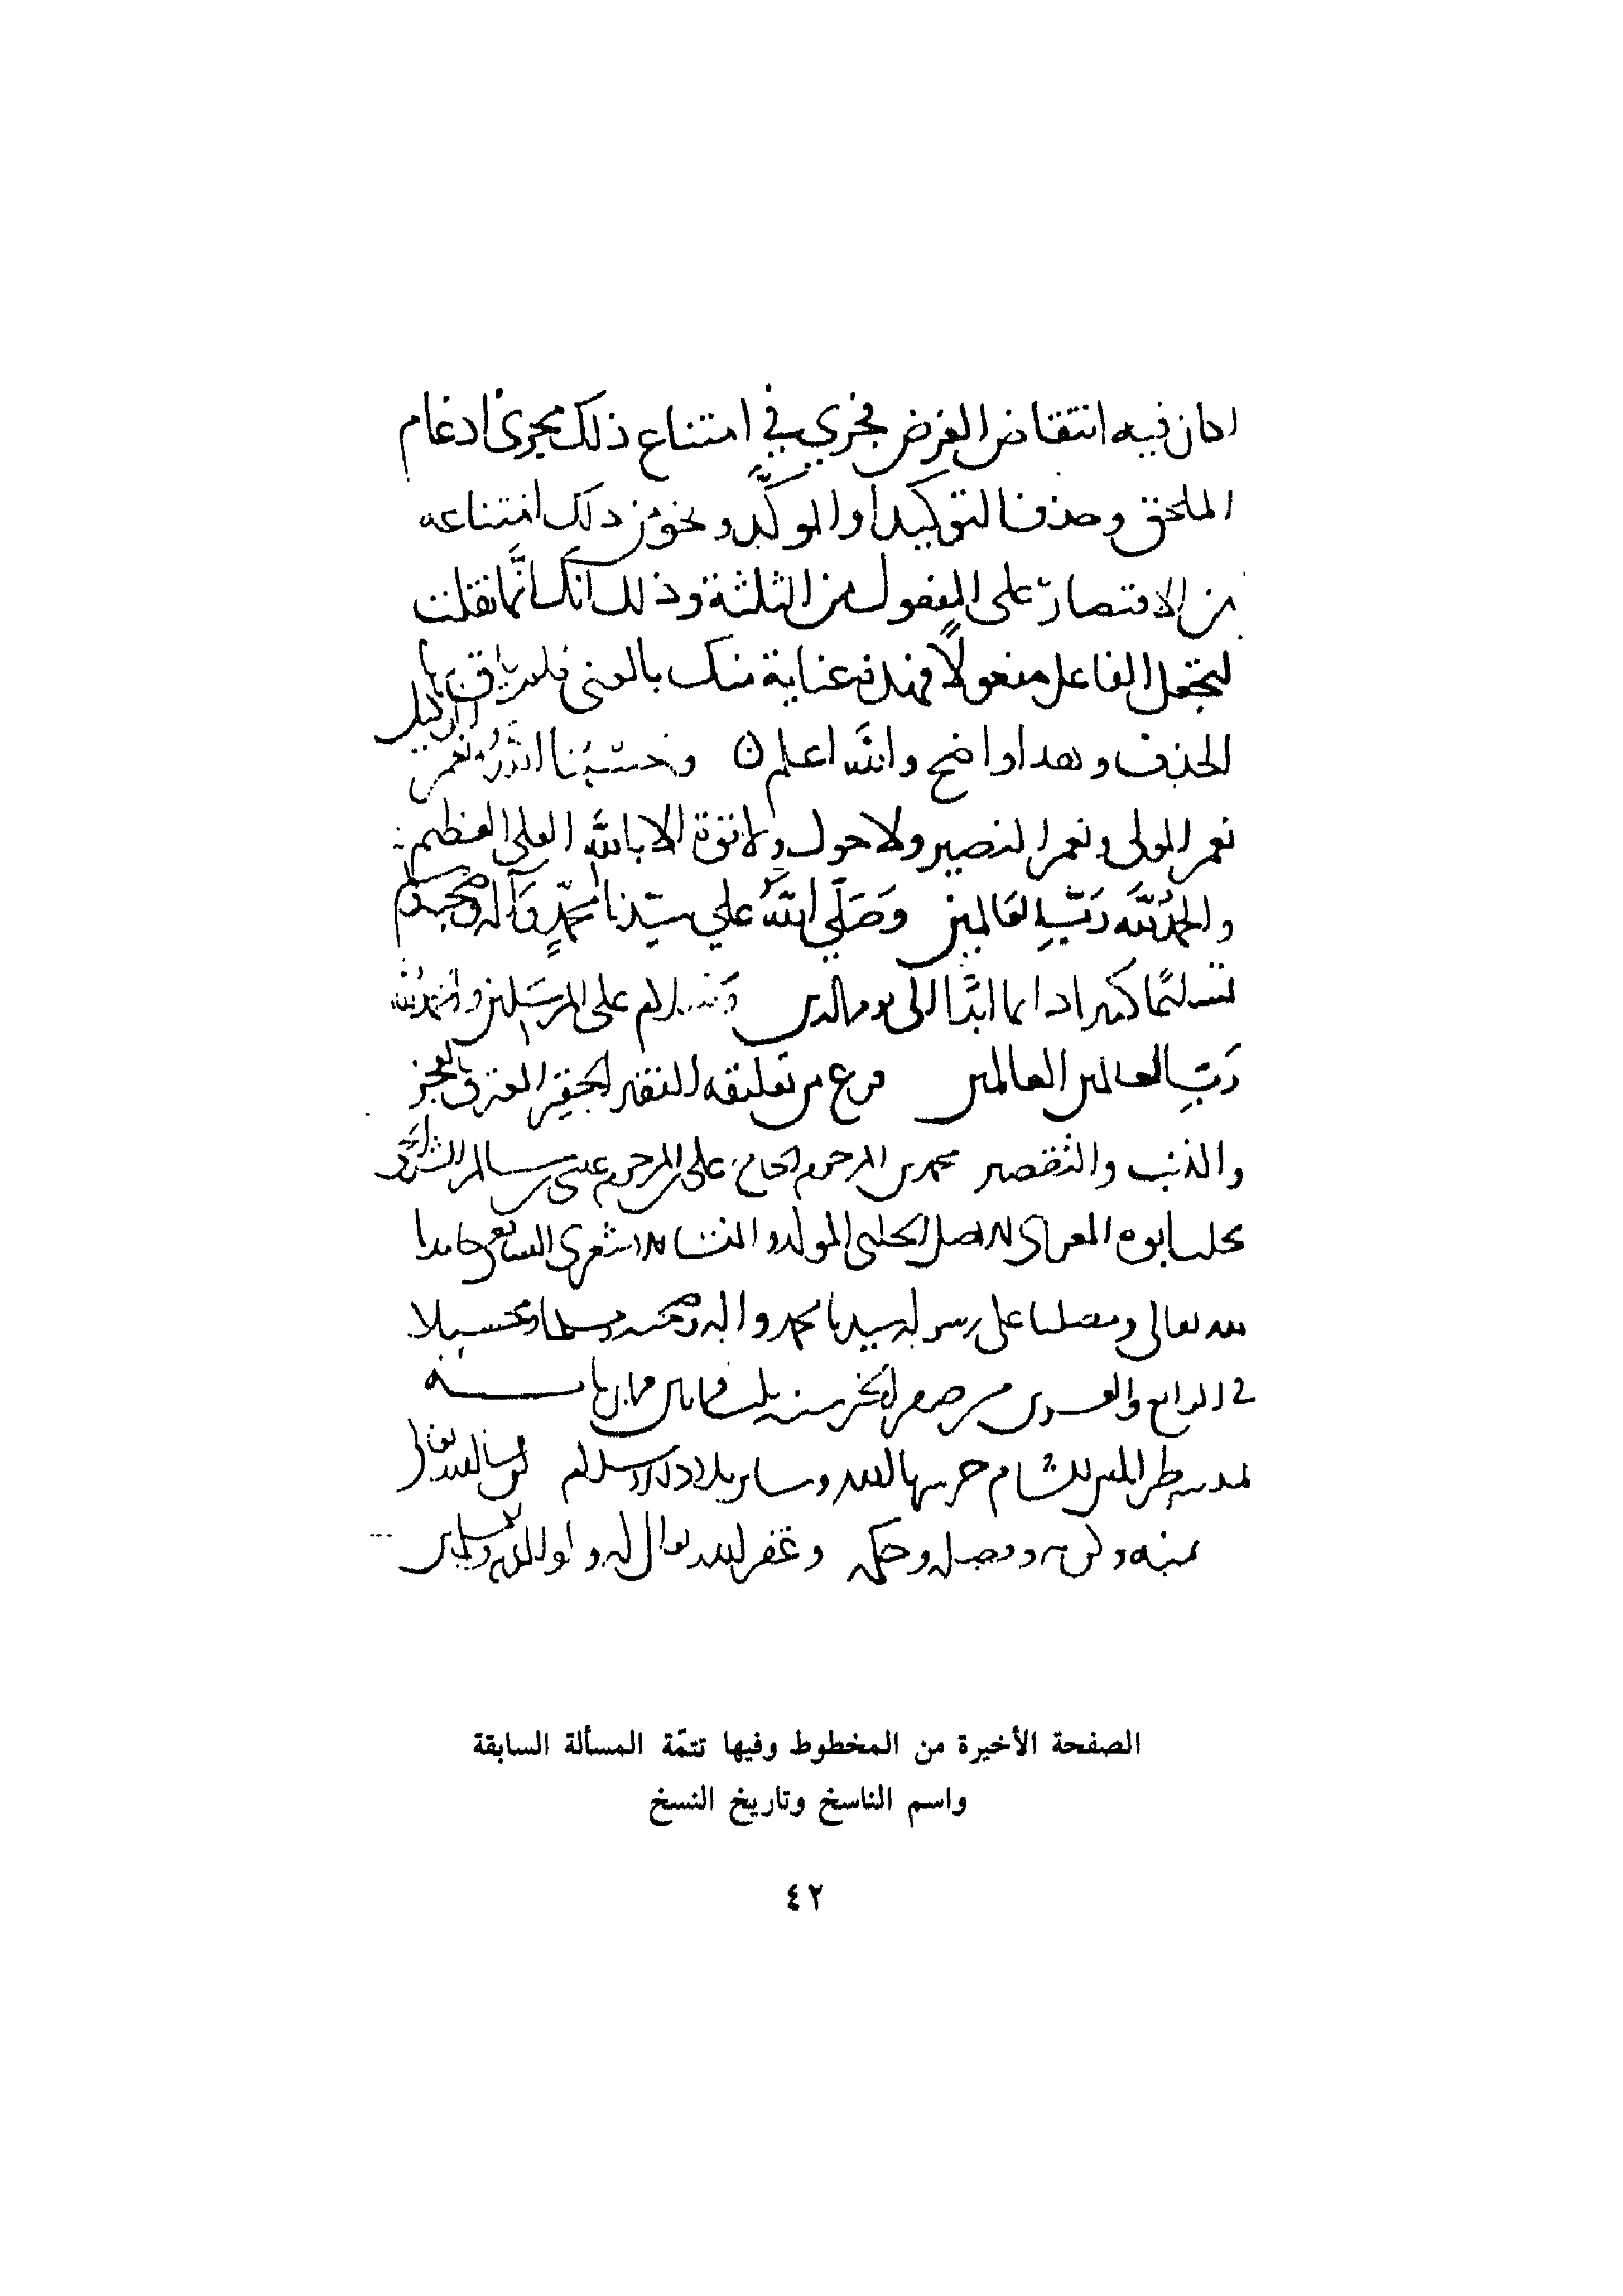 اذ كان فيه انتقاض الغرض فجرى في امتناع ذلك مجرى ادغام
الملحق وحذف التوكيد او الموكّد ونحو من ذلك امتناعه
من الاقتصار على المفعول من الثلثة وذلك انك انّما نقلت
لتجعل الفاعل مفعولًا فهذه عناية منك بالمعنى فلا
الحذف وهذا واضح والله اعلم ن وحسبُنا الله ونعم الوكيل
نعم المولى ونعم النصير ولا حول ولا قوة الا بالله العلي العظيم
والحمدُ للّه ربِّ العالمين وصَلّى اللهُ على سيّدنا محمّدٍ وآله وصحبه وسلم
تسليمًا كثيرا دائما ابدًا الى يوم الدين وسلام على المرسلين والحمدُ لله
ربِّ العالمين العالمين فرغ من تعليقه الفقير الحقير المعترف بالعجز
والذنب والتقصير محمد بن المرحوم الحاج على المرحوم عيسى بن سالم
ابوه المعراى الاصل الحلبي المولد والنشا الاشعرى الشافعى حامدا
لله تعالى ومصليا على رسوله سيدنا محمد واله وصحبه ومسلما ومحسبلا
في الرابع والعشرين من صفر الخير سنة ثلث وثمانين وثمان ماية
بمدينة طرابلس الشام حرسها الله وساير بلاد الاسلام تعالى
بمنه وكرمه وفضله وحكمه وغفر الله تعالى له ولوالديه
الصفحة الأخيرة من المخطوط وفيها تتمّة المسألة السابقة
واسم الناسخ وتاريخ النسخ
٤٢